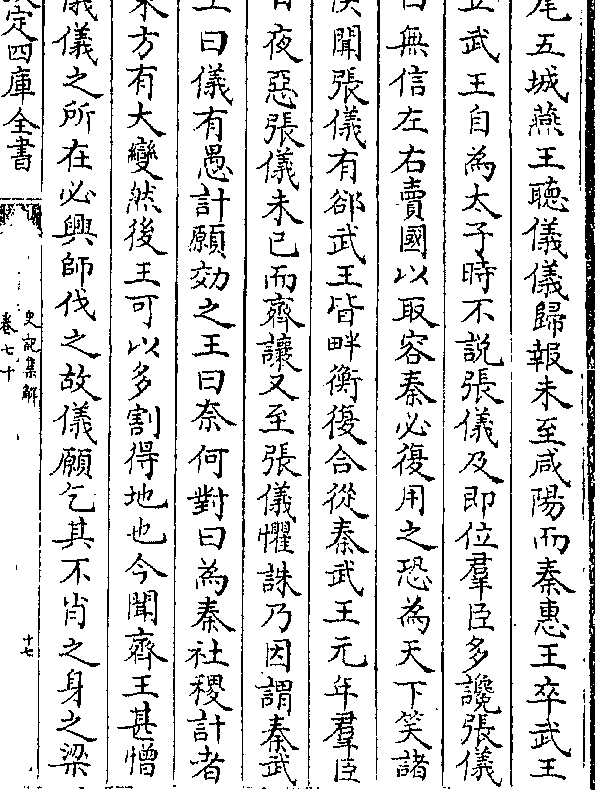 尾五城燕王聽儀儀歸報未至咸陽而秦惠王卒武王
立武王自為太子時不説張儀及即位羣臣多讒張儀
曰無信左右賣國以取容秦必復用之恐為天下笑諸
侯聞張儀有郤武王皆畔衡復合從秦武王元年羣臣
日夜惡張儀未已而齊讓又至張儀懼誅乃因謂秦武
王曰儀有愚計願効之王曰奈何對曰為秦社稷計者
東方有大變然後王可以多割得地也今聞齊王甚憎
儀儀之所在必興師伐之故儀願乞其不肖之身之梁
定四庫全書
史記集解
卷七十
十七